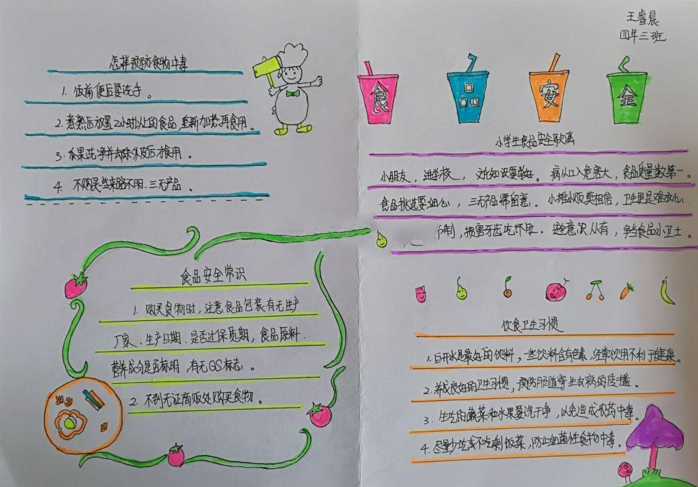 王睿晨
四年三班
怎样预防食物中毒
1. 饭前便后要洗手。
2. 煮熟后放置2小时以上的食品,重新加热再食用。
3. 水果洗净并去除外皮后才食用。
4. 不购买来路不明、三无产品。
食品安全
小学生食品安全歌谣
小朋友,进学校,
病从口入危害大,食品质量数第一。
食品挑选要细心,三无产品要留意。小摊小贩莫相信,卫生
争当食品小卫士。
食品安全常识
1. 购买食物时,注意食品包装有无生产
厂家、生产日期,是否过保质期,食品原料、
营养成分是否标明,有无QS标志。
2. 不到无证商贩处购买食物。
饮食卫生习惯
1. 白开水是最好的饮料,一些饮料含有色素,经常饮用不利于健康。
2. 养成良好的卫生习惯,预防肠道寄生虫病的传播。
3. 生吃的蔬菜和水果要洗干净,以免造成农药中毒。
4. 尽量少吃或不吃剩饭菜,防止细菌性食物中毒。